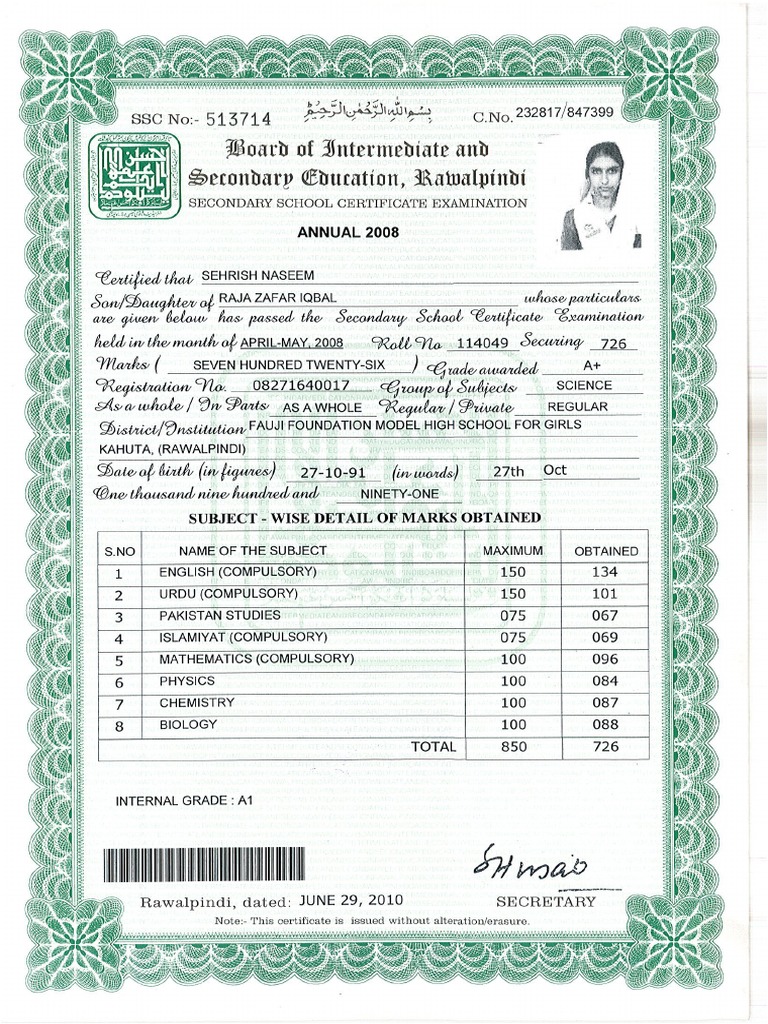 SSC No:- 513714
بِسْمِ اللّٰهِ الرَّحْمٰنِ الرَّحِيْمِ
C.No. 232817/847399
Board of Intermediate and
Secondary Education, Rawalpindi
SECONDARY SCHOOL CERTIFICATE EXAMINATION
ANNUAL 2008
Certified that SEHRISH NASEEM
Son/Daughter of RAJA ZAFAR IQBAL whose particulars
are given below has passed the Secondary School Certificate Examination
held in the month of APRIL-MAY, 2008 Roll No 114049 Securing 726
Marks ( SEVEN HUNDRED TWENTY-SIX ) Grade awarded A+
Registration No. 08271640017 Group of Subjects SCIENCE
As a whole / In Parts AS A WHOLE Regular / Private REGULAR
District/Institution FAUJI FOUNDATION MODEL HIGH SCHOOL FOR GIRLS
KAHUTA, (RAWALPINDI)
Date of birth (in figures) 27-10-91 (in words) 27th Oct
One thousand nine hundred and NINETY-ONE
SUBJECT - WISE DETAIL OF MARKS OBTAINED
S.NO NAME OF THE SUBJECT MAXIMUM OBTAINED
1 ENGLISH (COMPULSORY) 150 134
2 URDU (COMPULSORY) 150 101
3 PAKISTAN STUDIES 075 067
4 ISLAMIYAT (COMPULSORY) 075 069
5 MATHEMATICS (COMPULSORY) 100 096
6 PHYSICS 100 084
7 CHEMISTRY 100 087
8 BIOLOGY 100 088
TOTAL 850 726
INTERNAL GRADE : A1
Rawalpindi, dated: JUNE 29, 2010
SECRETARY
Note:- This certificate is issued without alteration/erasure.